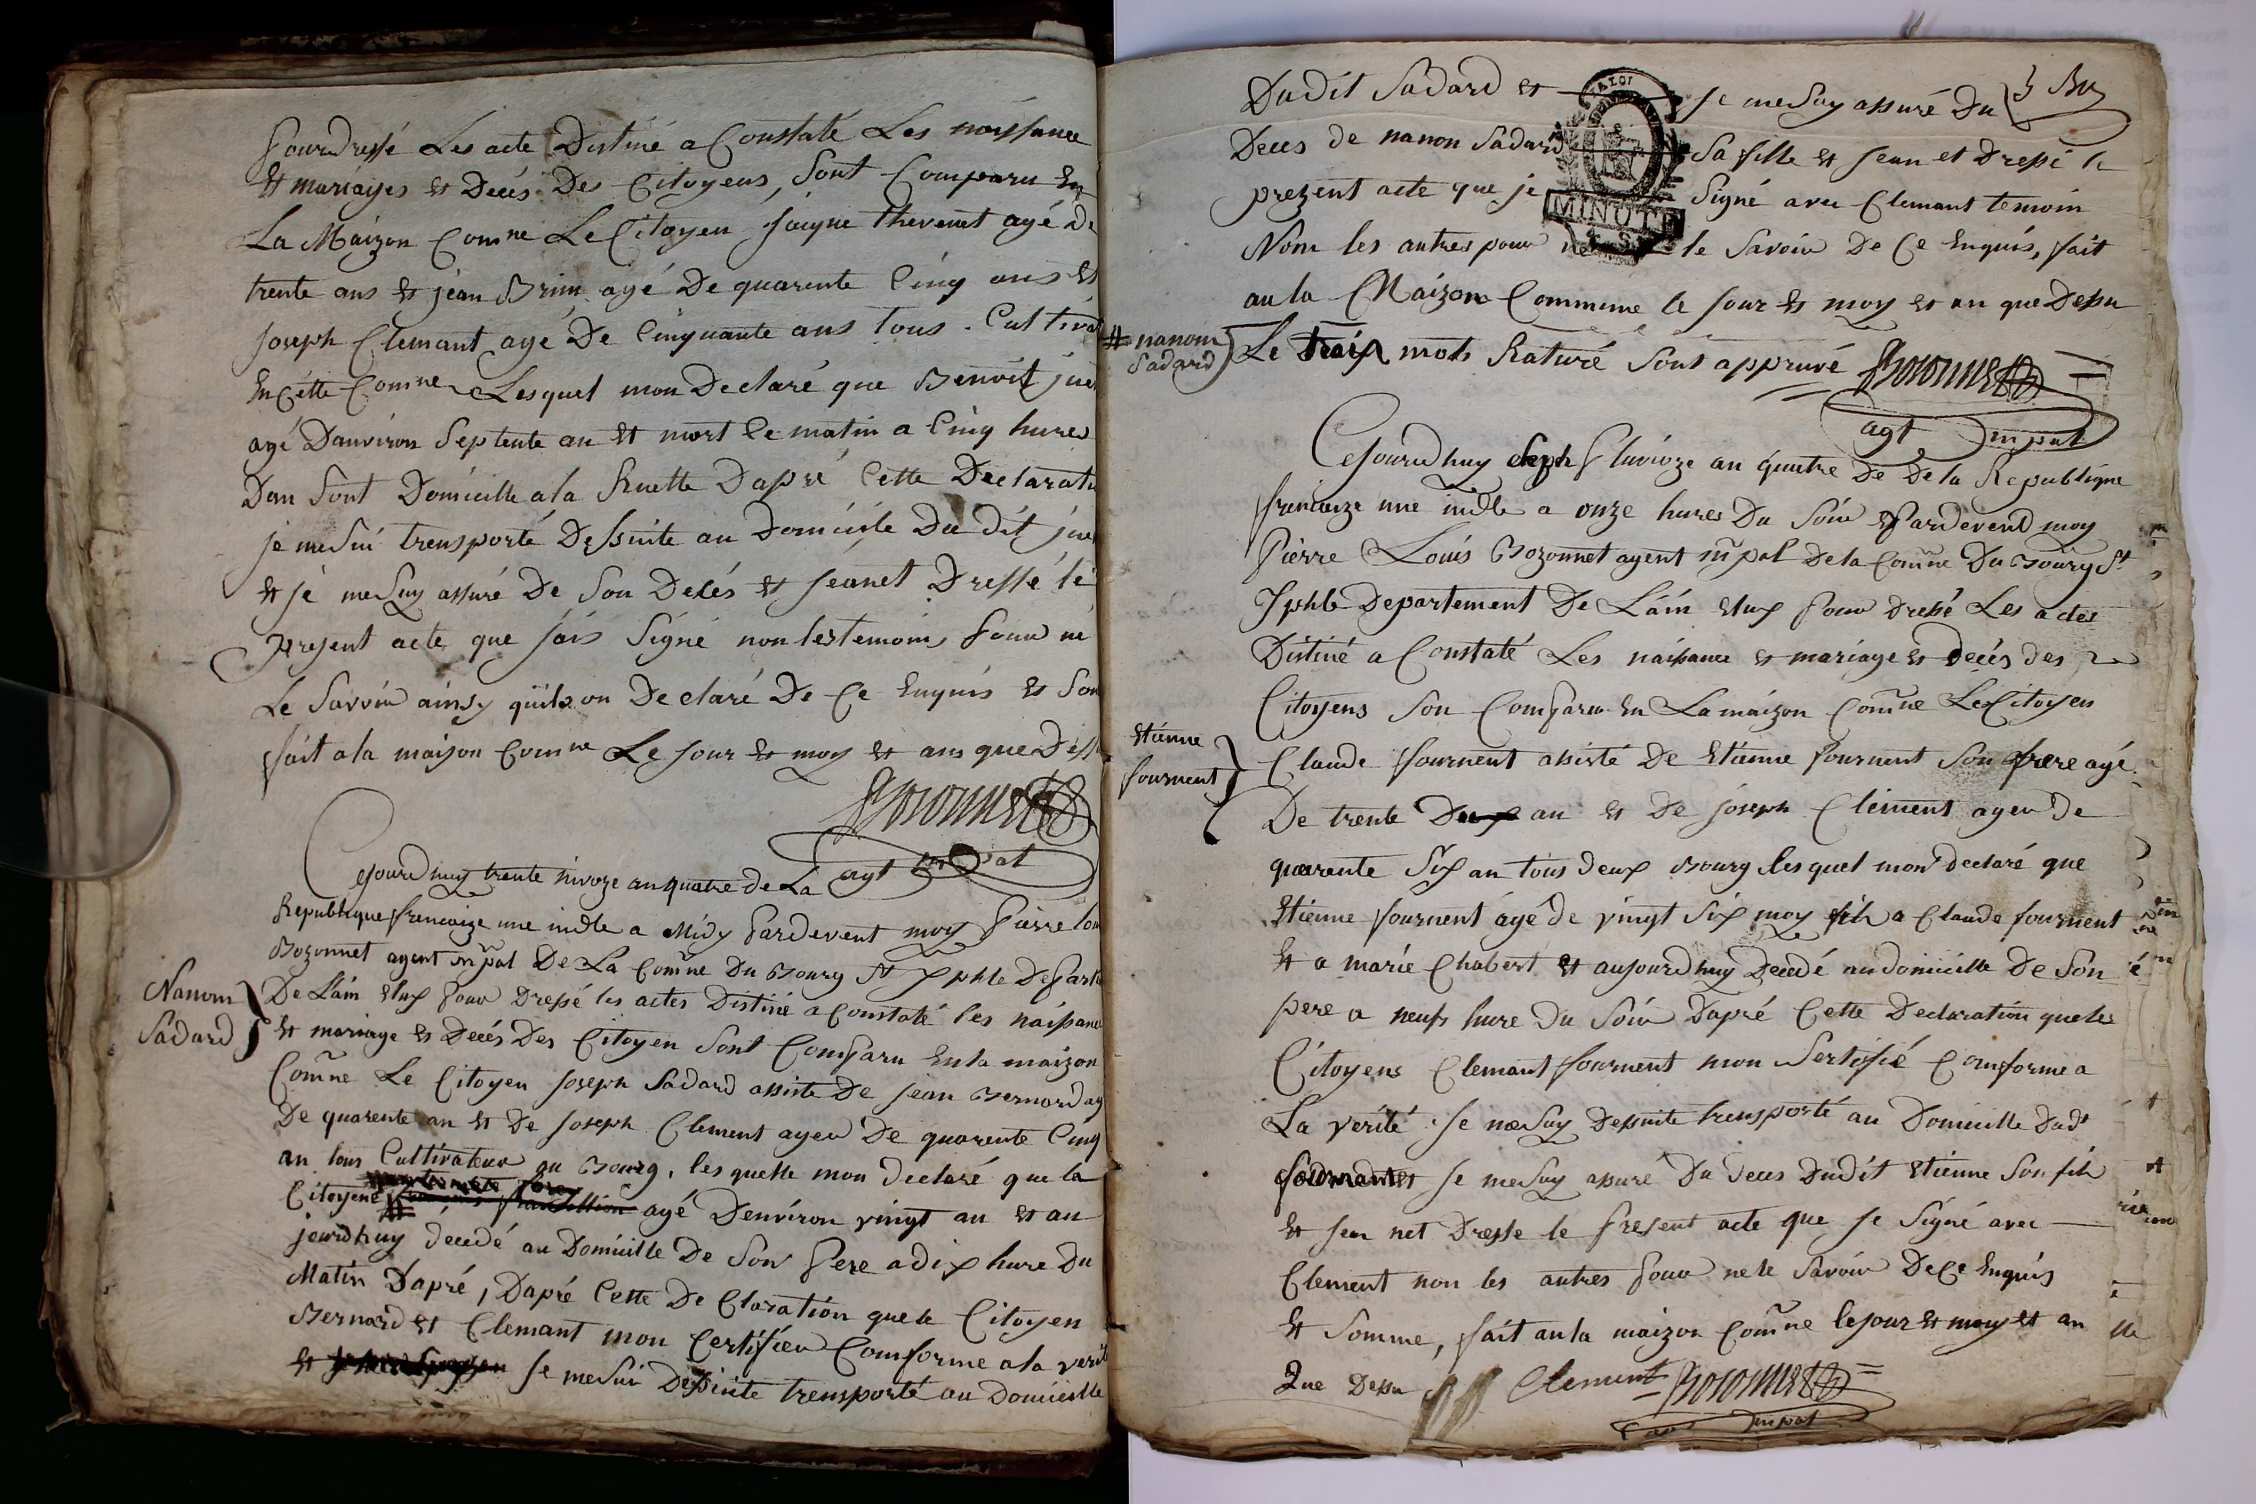 pour dressé Les acte Distiné a Constaté Les noissance
Et mariages Et Decés Des Citoyens, Sont Comparu En
La Maizon Comne Le Citoyen Thevenet agé De
trente ans Et jean Brun agé De quarente Cinq ans Et
Joseph Clemant agé De Cinquante ans tous Cultiva
En Cette Comne Lesquel mon Declaré que Benoit jue
agé Danviron Septente an Et mort Ce matin a Cinq hures
Dan Sont Domicille a la Ruette Dapré Cette Declaratio
je me Sui trensporté De Suite au Domicile Du dit jue
Et je me Suy assuré De Son Decés Et Jeanet Dressé le
present acte que jais Signé non les temoins pour ne
Le Savoir ainsy quils on Declaré De Ce Enquis Et Son
fait a la maison Comne Le Jour Et moy Et ans que Dess
Bozonnet
agt mpal
Cejourdhuy trente nivoze an quatre de La
Republique francaize une indle a Midy pardevent moy Pierre lou
Bozonnet agent mpal De La Comne Du Bourg St Jphle Departe
Nanon
Sadard
De Lain Elux pour Dressé les actes Distiné a Constaté les naisance
Et mariage Et Decés Des Citoyen Sont Comparu En la maizon
Comne Le Citoyen Joseph Sadard assisté De Jean Bernard ag
De quarente an Et De Joseph Clement ageu De quarente Cinq
an tous Cultivateur au Bourg, les quelle mon declaré que la
Citoyene # agé Denviron vingt an Et au
jourdhuy decedé au Domicille De Son Pere a dix hure Du
Matin Dapré, Dapré Cette De Claration que le Citoyen
Bernard Et Clemant mon Certifieu Comforme a la verit
Et Je me Sui Desuite trensporté au Domicille
Dudit Sadard Et Je me Suy assuré Du
Deces de nanon Sadard Sa fille Et Jean et Dressé le
prezent acte que je Signé avec Clemant temoin
Nom les autres pour ne le Savoir De Ce Enquis, fait
au la Maizon Commune le Jour Et moy Et an que Desu
MINUTE
# nanon
Sadard
Le trois mots Raturé Sont appruvé Bozonnet
agt mpal
Cejourdhuy Sept Pluvioze an quatre De De la Republique
francaize une indle a onze hures Du Soir Pardevend moy
Pierre Louis Bozonnet agent mpal De la Comne Du Bourg St
Jphle Departement De Lain Elux pour Dressé Les actes
Distiné a Constaté Les naisance Et mariage Et Decés des
Citoyens Son Comparu En La maizon Comne Le Citoyen
Etienne
fournent
Claude fournent asisté De Etienne fournent Son frere agé
De trente Deux an Et De Joseph Clement ageu De
quarente Six an tous deux Bourg lesquel mon declaré que
Etienne fournent agé de vingt Six moy fils a Claude fournent
Et a marie Chabert Et aujourdhuy Decedé au domicille De Son
pere a neufs hure Du Soir Dapré Cette Declaration que les
Citoyens Clemant fournent mon Sertifié Comforme a
La verité Je me Suy Desuite trensporté au Domicille Dudt
fournent Et Je me Suy assuré Du deces Dudit Etienne Son fils
Et Jen net Dresse le present acte que Je Signé avec
Clement non les autres pour ne le Savoir De Ce Enquis
Et Somme, fait au la maizon Comne le jour Et moy Et an
Que Desu Clement Bozonnet
agt mpal